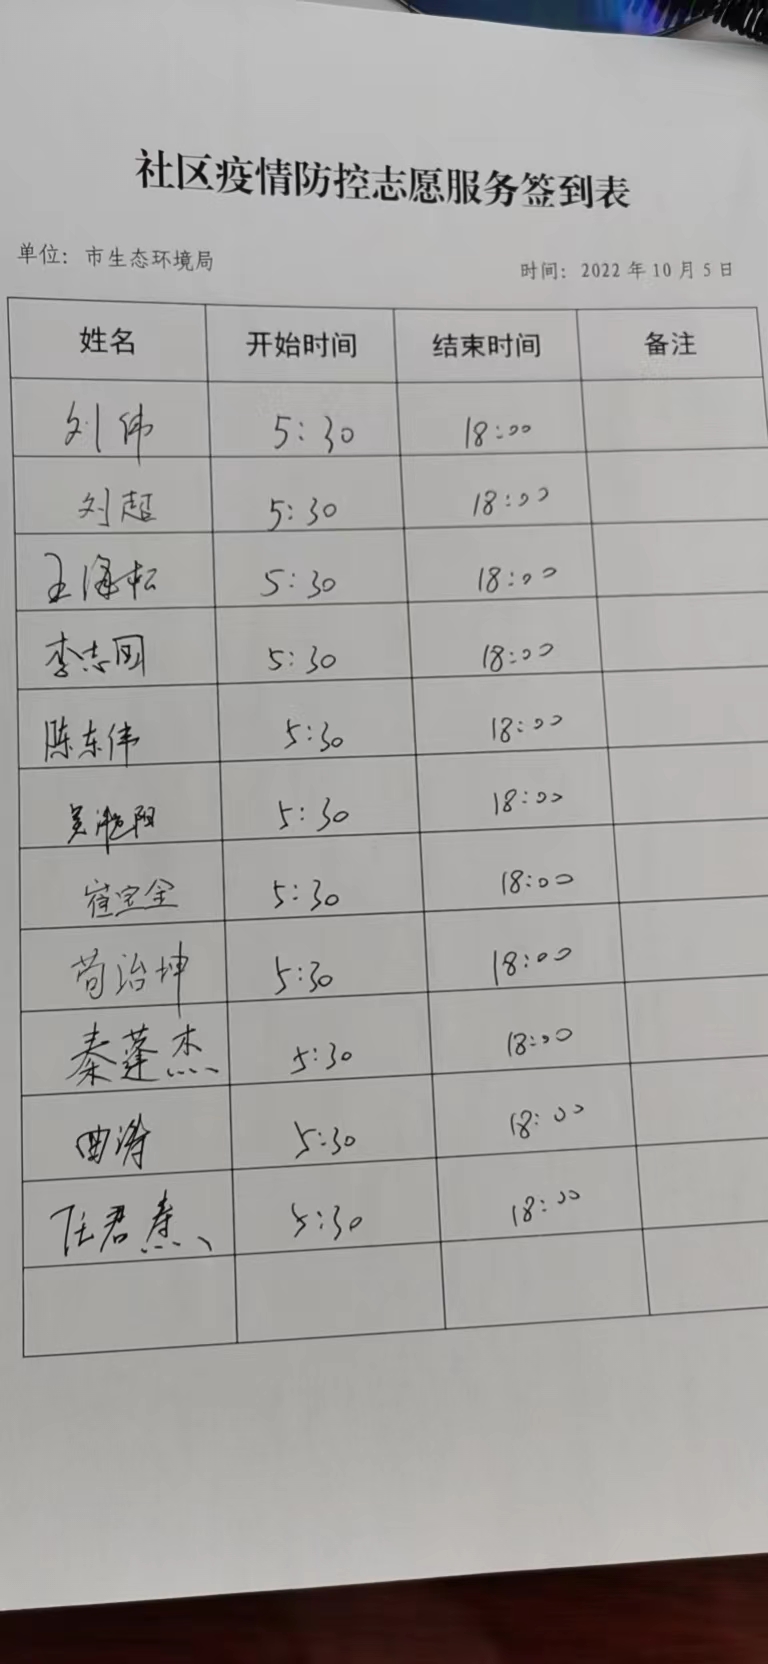 社区疫情防控志愿服务签到表
单位：市生态环境局 时间：2022年10月5日
姓名 开始时间 结束时间 备注
刘伟 5:30 18:00
刘超 5:30 18:00
王 松 5:30 18:00
李志国 5:30 18:00
陈东伟 5:30 18:00
吴 阳 5:30 18:00
崔宝全 5:30 18:00
苟治坤 5:30 18:00
秦蓬杰 5:30 18:00
曲涛 5:30 18:00
任君 5:30 18:00